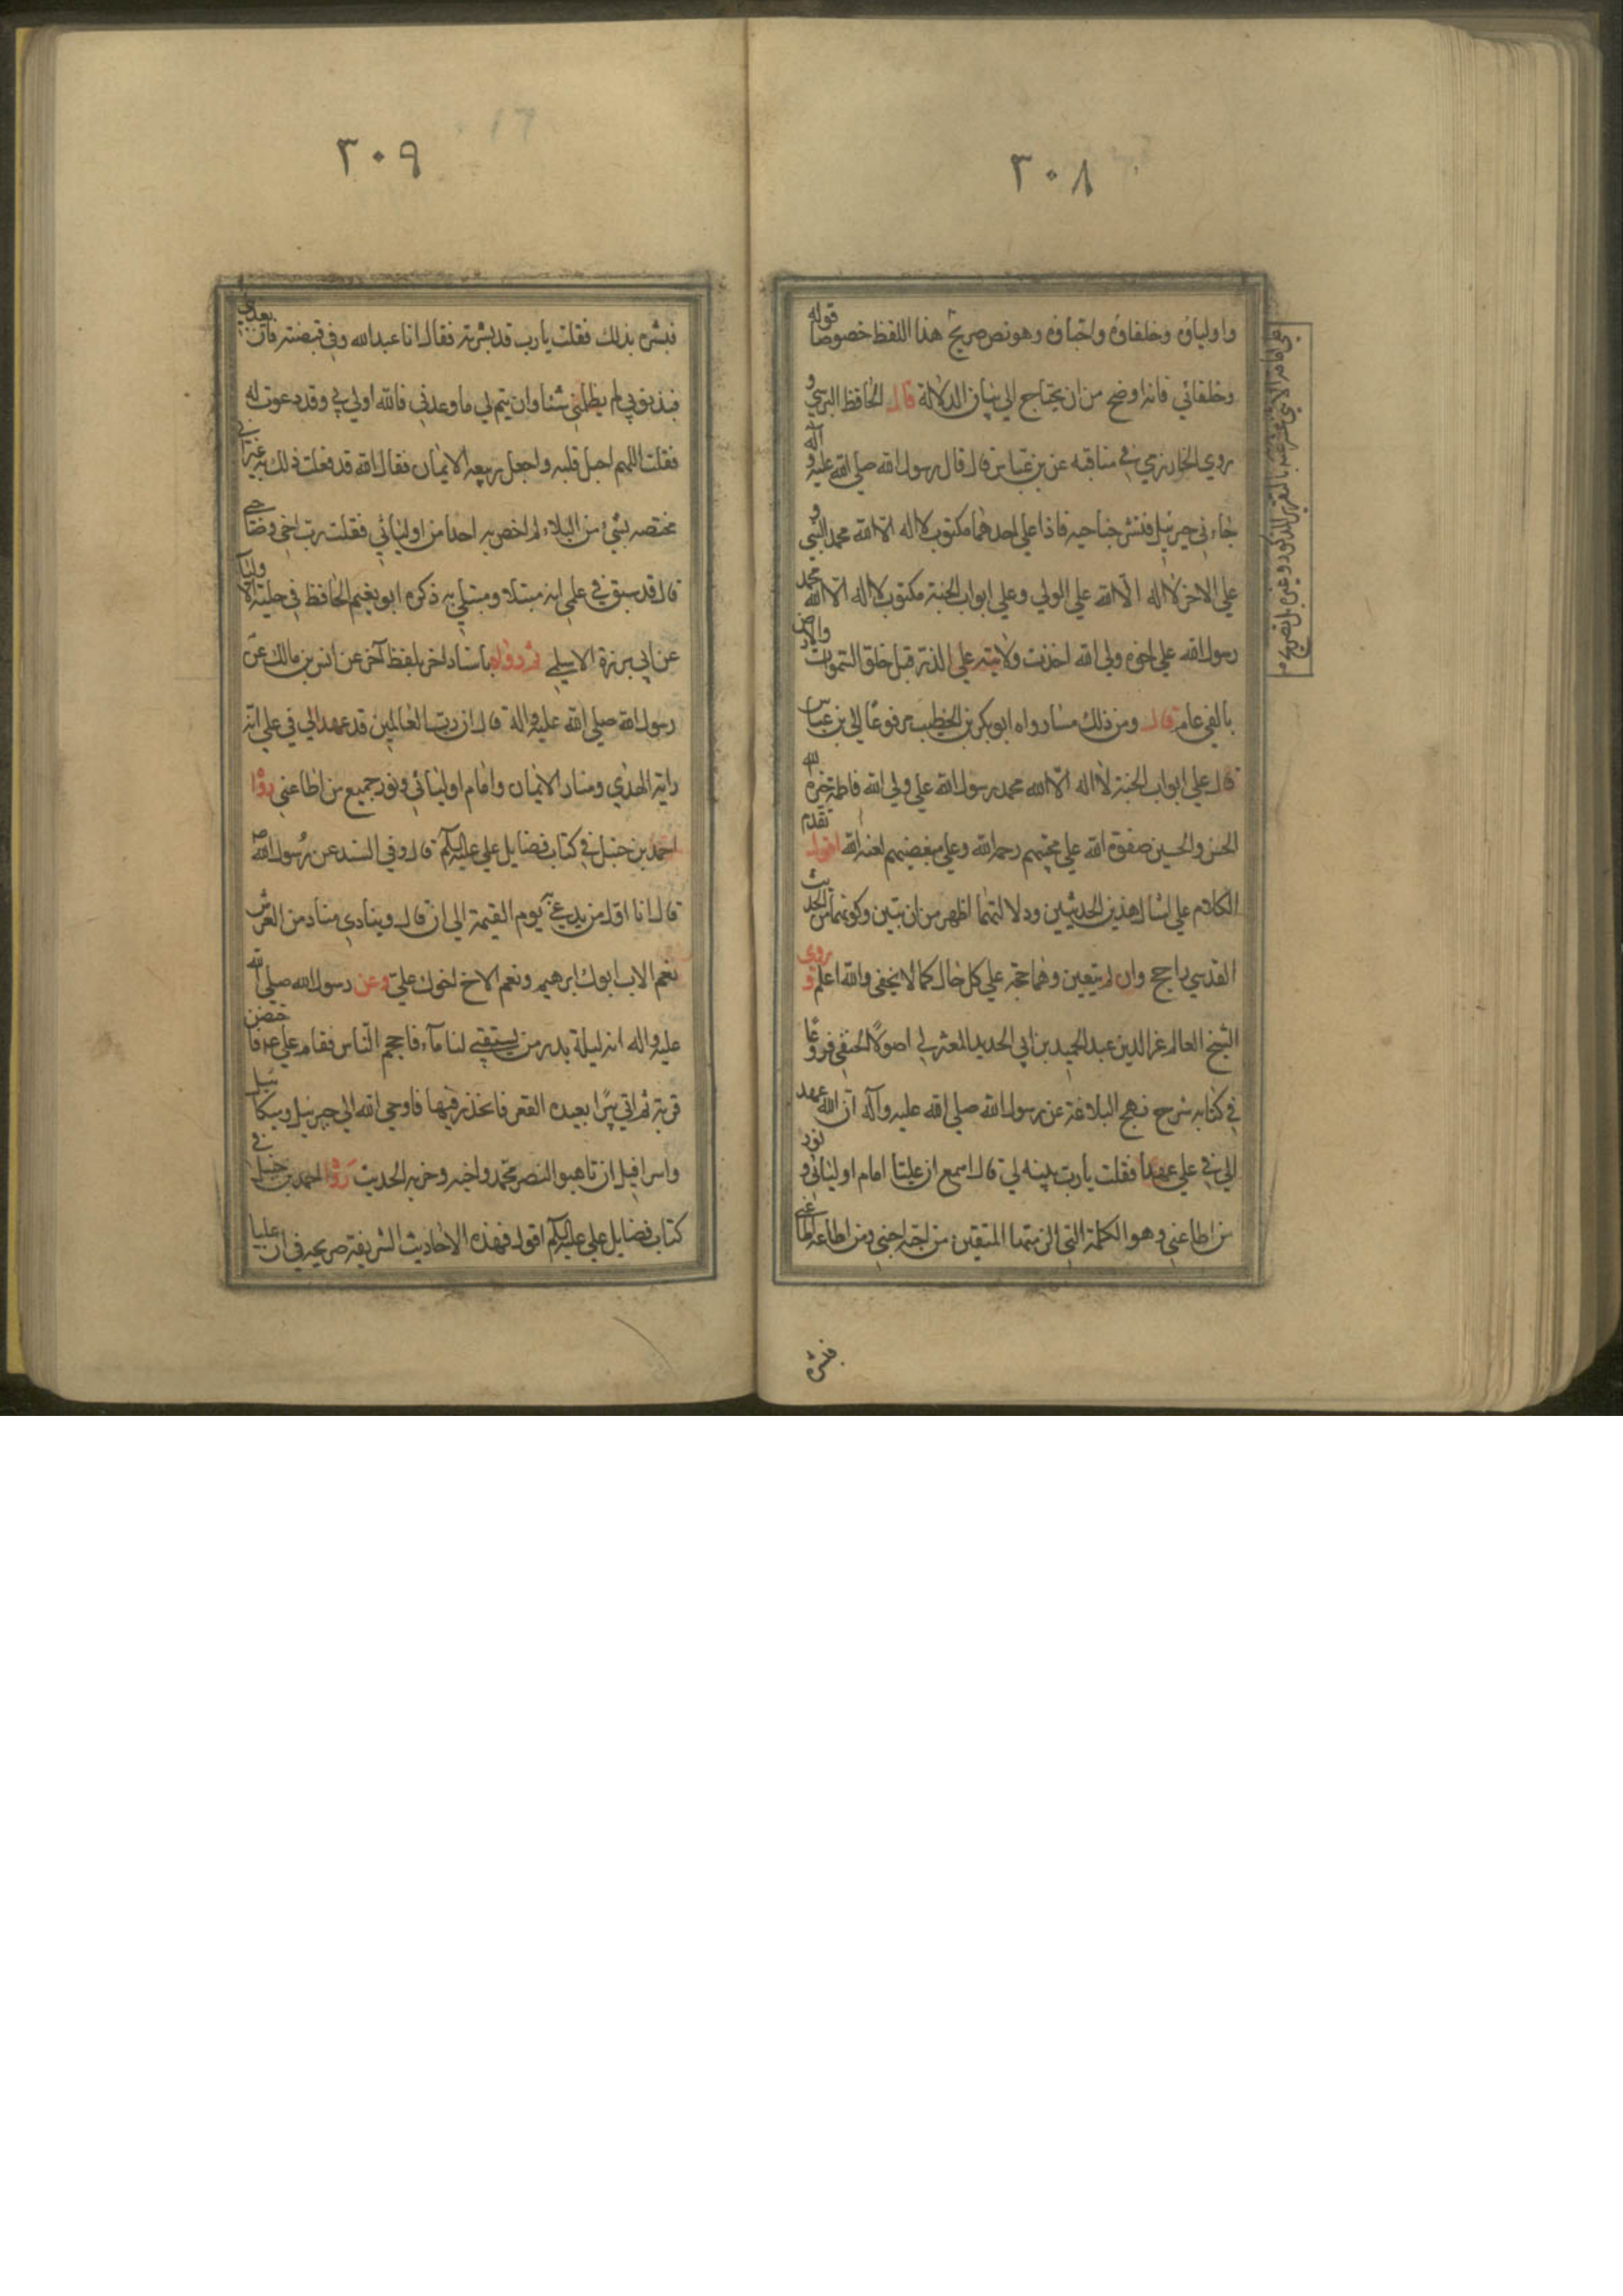 ٣٠٨
واولياؤه وخلفاؤه واحباؤه وهو نص صريح هذا اللفظ خصوصا قوله
وخلفائي فانه اوضح من ان يحتاج الي بيان الدلالة قال الحافظ البرسي و
روي الخوارزمي في مناقبه عن بن عباس قال قال رسول الله صلي الله عليه وآله
جاءني جبرئيل فنشر جناحيه فاذا علي احدهما مكتوب لا اله الا الله محمد النبي و
علي الاخر لا اله الا الله علي الولي وعلي ابواب الجنة مكتوب لا اله الا الله محمد
رسول الله علي اخوه ولي الله اخذت ولايته علي الذر قبل خلق السموات والارض
بالفي عام قال ومن ذلك ما رواه ابو بكر بن الخطيب مرفوعا الي بن عباس
قال علي ابواب الجنة لا اله الا الله محمد رسول الله علي ولي الله فاطمة خيرة الله
الحسن والحسين صفوة الله علي محبيهم رحمة الله وعلي مبغضيهم لعنة الله اقول تقدم
الكلام علي امثال هذين الحديثين ودلالتهما اظهر من ان تبين وكونهما من الحديث
القدسي راجح وان لم يتعين وهما حجة علي كل حال كما لا يخفي والله اعلم وروي
الشيخ العالم عز الدين عبد الحميد بن ابي الحديد المعتزلي اصولاً الحنفي فروعًا
في كتابه شرح نهج البلاغة عن رسول الله صلي الله عليه وآله ان الله عهد
الي في علي عهدا فقلت يا رب بينه لي قال اسمع ان عليا امام اوليائي ونور
من اطاعني وهو الكلمة التي الزمتها المتقين من احبه احبني ومن اطاعه اطاعني
فبشره
٣٠٩
فبشره بذلك فقلت يا رب قد بشرته فقال انا عبد الله وفي قبضته فان يعذبني
فبذنوبي لم يظلمني شيئا وان يتم لي ما وعدني فالله اولي بي وقد دعوت له
فقلت اللهم اجل قلبه واجعل ربيعه الايمان فقال الله قد فعلت ذلك به غير اني
مختصه بشيء من البلاء لم اخص به احدا من اوليائي فقلت رب اخي وصاحبي
قال قد سبق في علمي انه مبتلا ومبتلي به ذكره ابو نعيم الحافظ في حلية الاولياء
عن ابي برزة الاسلمي ثم رواه باسناد اخر بلفظ آخر عن انس بن مالك عن
رسول الله صلي الله عليه واله قال ان رب العالمين قد عهد الي في علي انه
راية الهدي ومنار الايمان وامام اوليائي ونور جميع من اطاعني روا
احمد بن حنبل في كتاب فضايل علي عليه السلام قال وفي المسند عن رسول الله ص
قال انا اول من يدعي به يوم القيمة الي ان قال وينادي مناد من العرش
نعم الاب ابوك ابرهيم ونعم الاخ اخوك علي وعن رسول الله صلي الله
عليه واله انه ليلة بدر من يستقي لنا مآء فاحجم الناس فقام علي ع فاحتضن
قربة ثم اتي بئرا بعيده القعر فانحدر فيها فاوحي الله الي جبرئيل وميكائيل
واسرافيل ان تاهبوا لنصر محمد واخيه وحزبه الحديث روا احمد بن حنبل في
كتاب فضايل علي عليه السلام اقول فهذه الاحاديث الشريفة صريحه في ان عليا